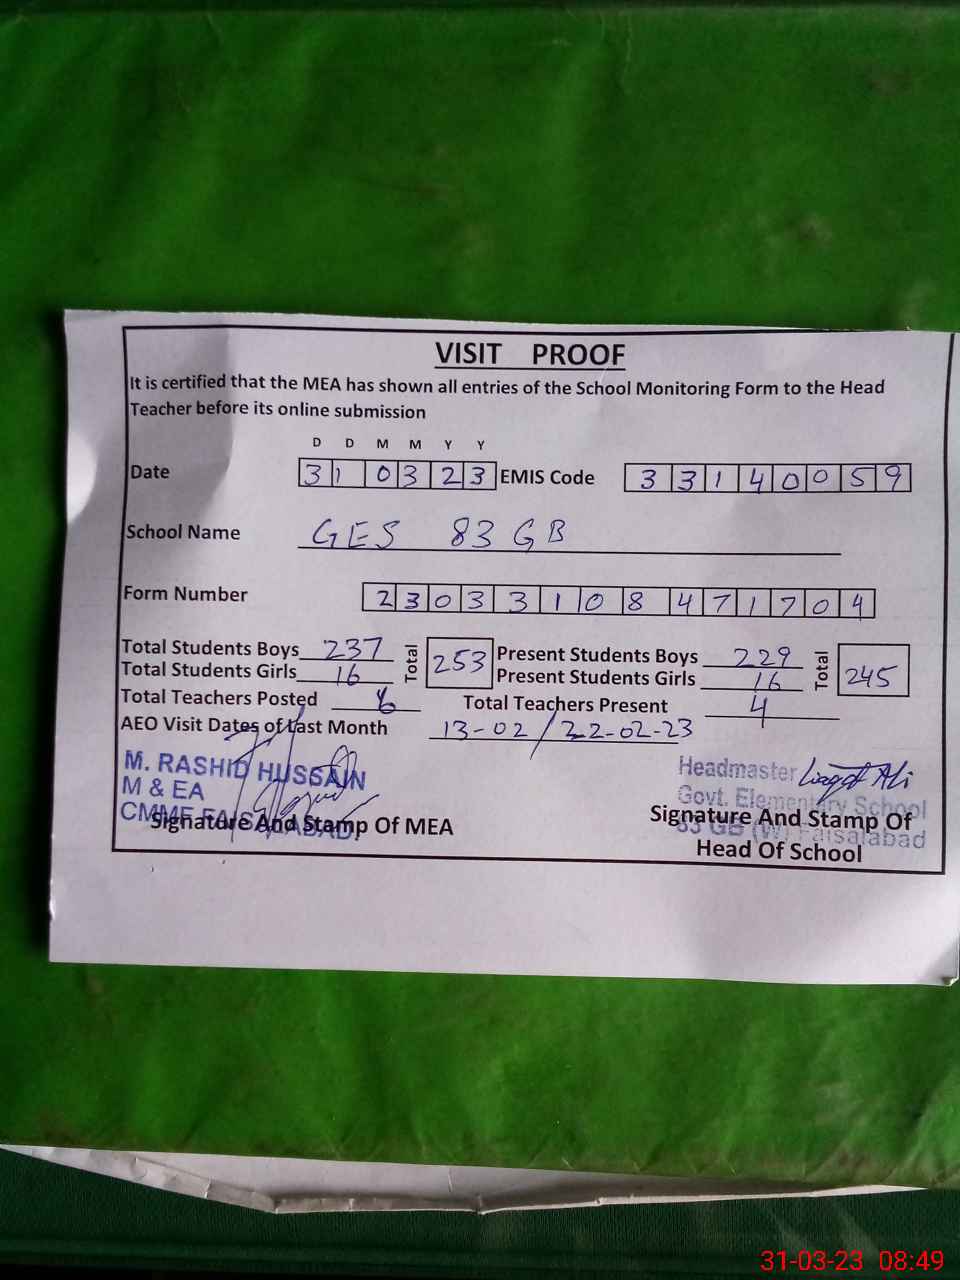 VISIT PROOF
It is certified that the MEA has shown all entries of the School Monitoring Form to the Head
Teacher before its online submission
D D M M Y Y
Date 31 03 23 EMIS Code 33140059
School Name GES 83 GB
Form Number 23033108471704
Total Students Boys 237 Total 253 Present Students Boys 229 Total 245
Total Students Girls 16 Present Students Girls 16
Total Teachers Posted Total Teachers Present 4
AEO Visit Dates of Last Month 13-02 / 22-02-23
M. RASHID HUSSAIN
M & EA
CMMF FAISALABAD
Signature And Stamp Of MEA
Headmaster Liaqat Ali
Govt. Elementary School
83 GB (W) Faisalabad
Signature And Stamp Of
Head Of School
31-03-23 08:49